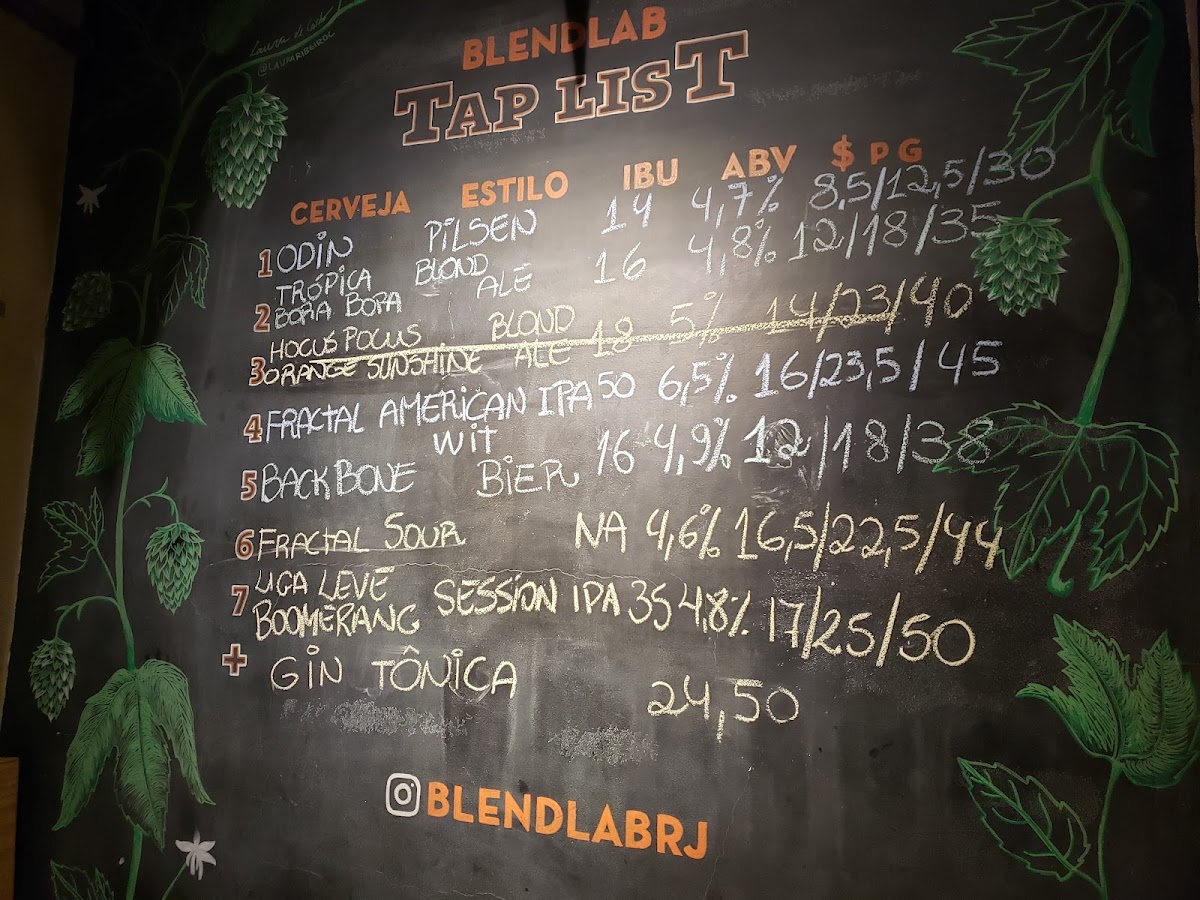 @LAURARIBEIROL
BLENDLAB
TAP LIST
CERVEJA ESTILO IBU ABV $ P G
1 ODIN PILSEN 14 4,7% 8,5/12,5/30
2 TRÓPICA BORA BORA BLOND ALE 16 4,8% 12/18/35
3 HOCUS POCUS ORANGE SUNSHINE BLOND ALE 18 5% 14/23/40
4 FRACTAL AMERICAN IPA 50 6,5% 16/23,5/45
5 BACKBONE WIT BIER 16 4,9% 12/18/38
6 FRACTAL SOUR NA 4,6% 16,5/22,5/44
7 LIGA LEVE BOOMERANG SESSION IPA 35 4,8% 17/25/50
+ GIN TÔNICA 24,50
BLENDLABRJ